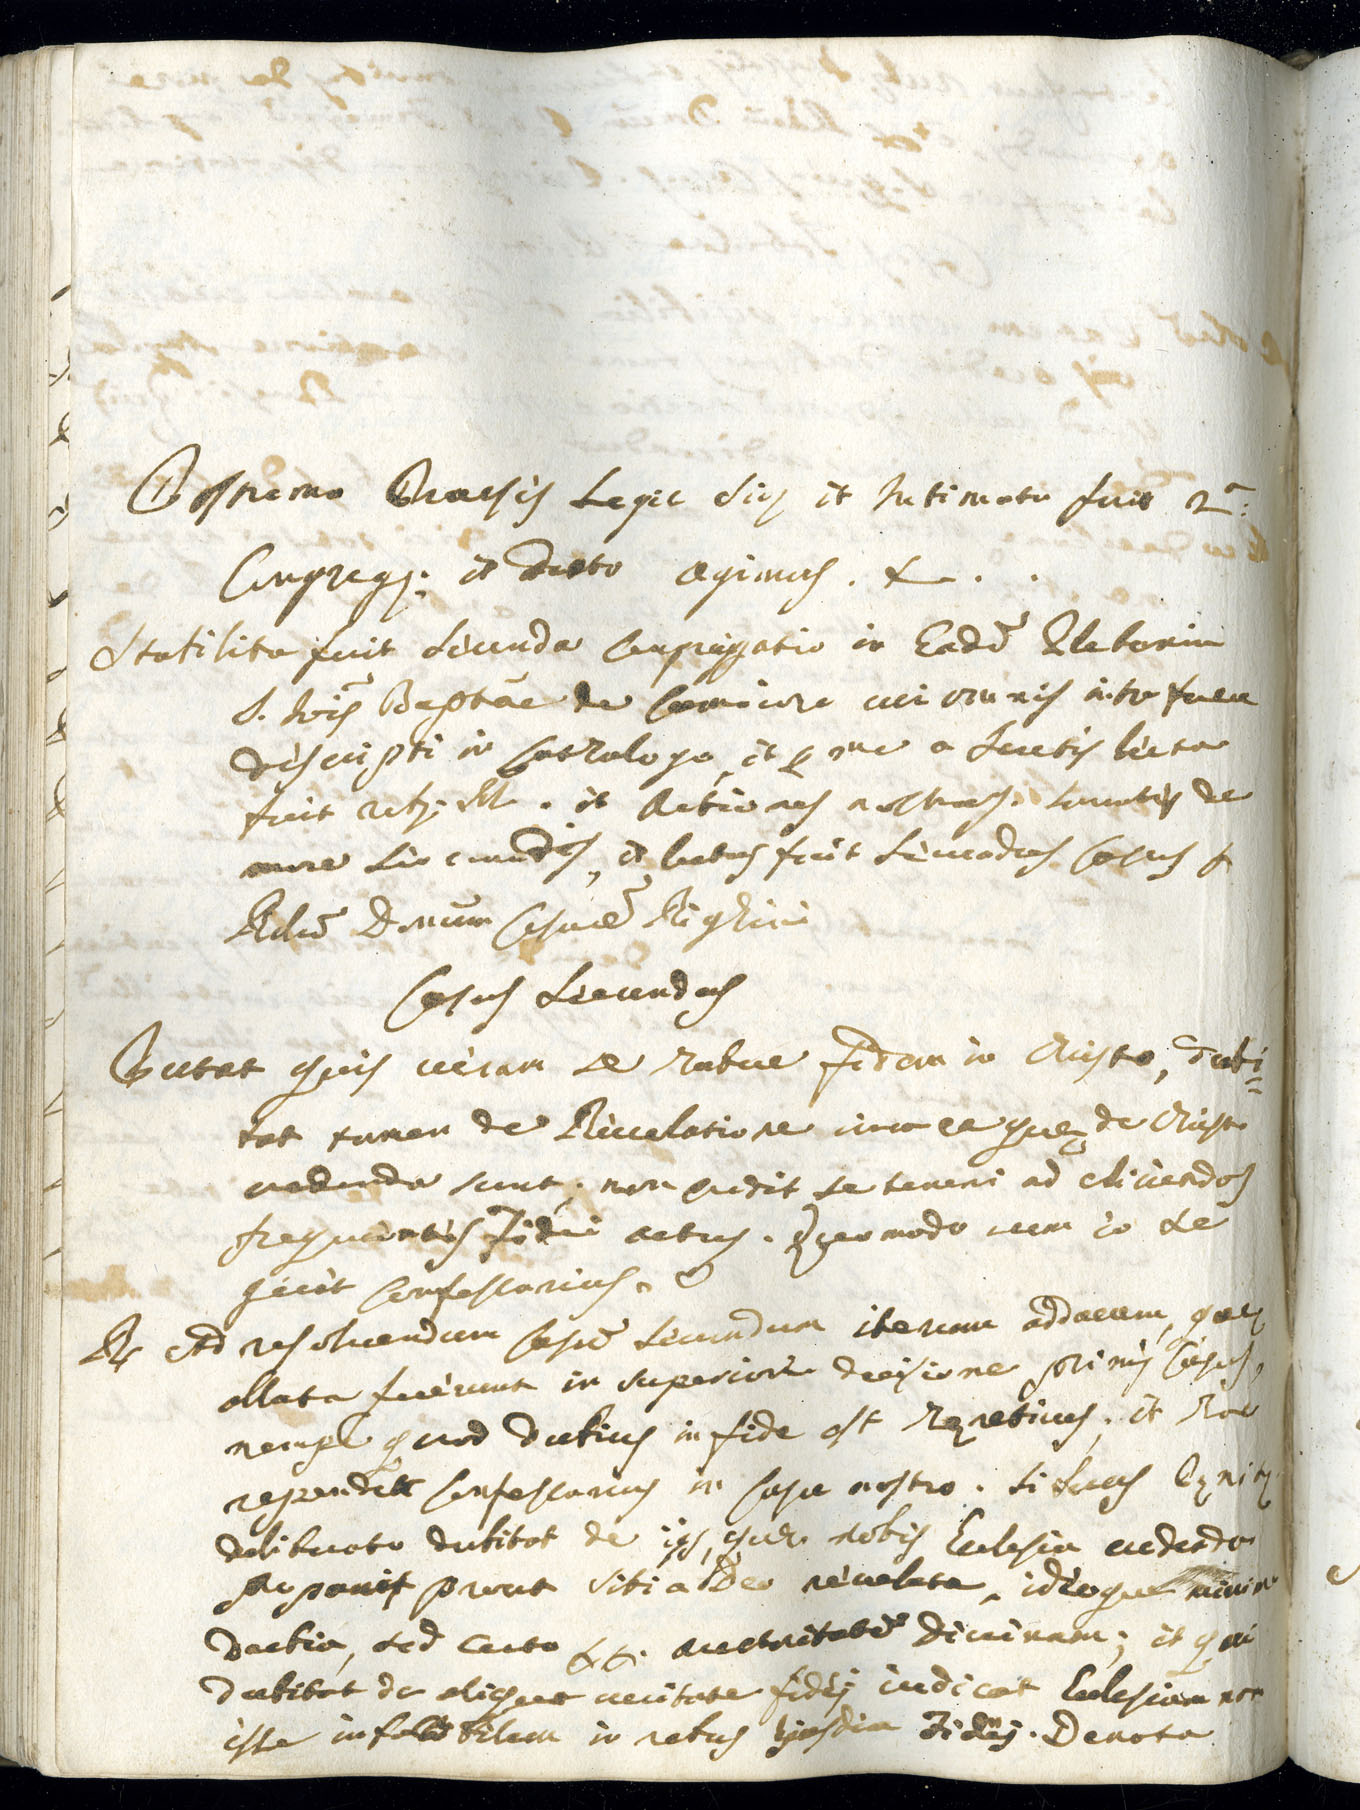 Postremo Precijs legit dies et Intimata fuit 2.ª
Congreg: et dicto agimus. &.
Stabilita fuit secunda Congregatio in Eadē Plebania
S. Jois Baptāe de cui omnes intro
descripti in Cathalogo, et p me a Secretis lecta
fuit et Actiones nostras. de
more et lectus fuit Secundus Casus p
Adm̄ R. Dnum
Casus Secundus
Putat quis veram se habere fidem in Christo, dubi=
tat tamen de Revelatione circa ea quae de Christo
credenda sunt, non credit se teneri ad eliciendos
frequentes Fidei actus. Quomodo cum eo se
gerit Confessarius.
R. Ad resoluendum Casū Secundum iterum adducam, quae
allata fuerunt in superiori decisione primi Casus,
nempe quod dubius in fide est Haereticus, et hoc
respondet Confessarius in Casu nostro. Si
deliberate dubitat de ijs, quae nobis Eclesia credenda
proponit prout sibi a Deo reuelata, ideoque minime
dubia, sed certa auctoritatē Diuinam; et qui
dubitat de aliqua ueritate fidei iudicat Eclesiam non
esse infalibilem in rebus eiusdem Fidei. Denota